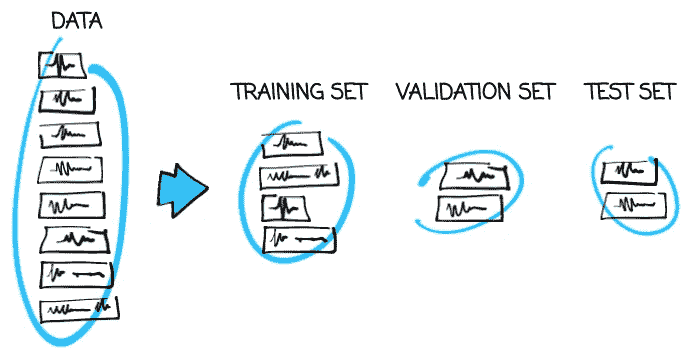 DATA
TRAINING SET
VALIDATION SET
TEST SET